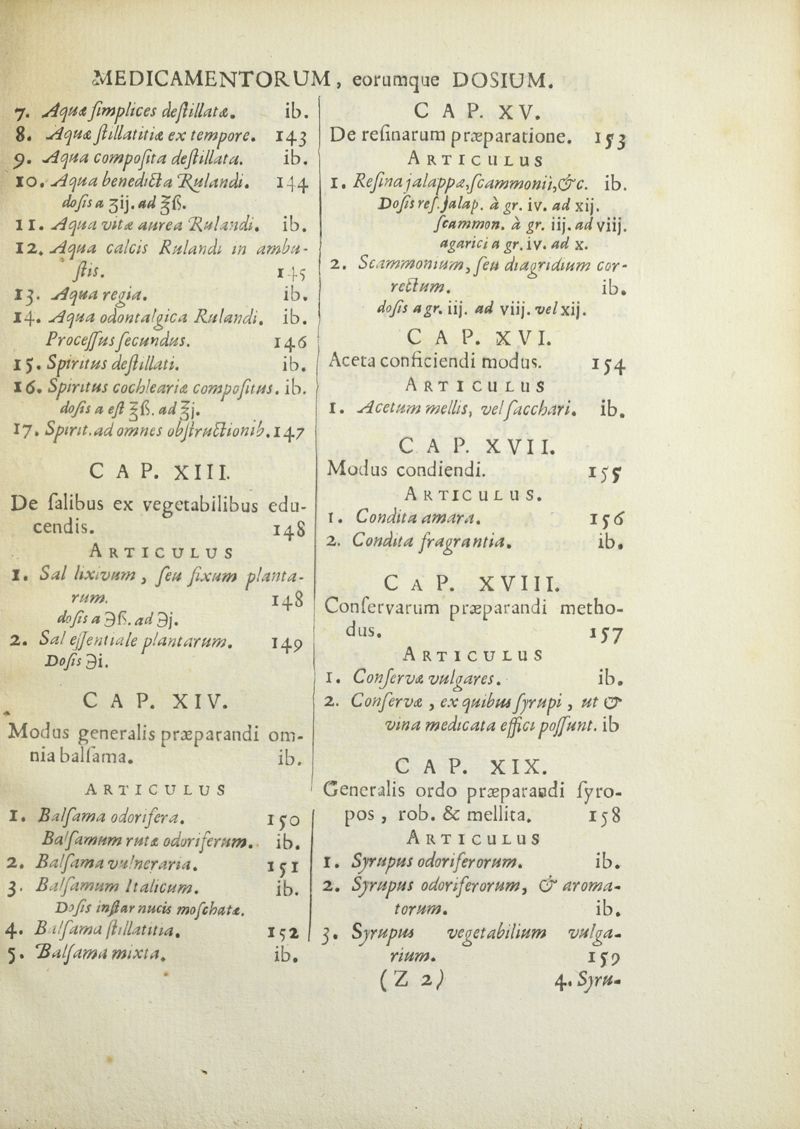 MEDICAMENTORUM, eorumque DOSIUM.
7. Aquæ ſimplices deſtillatæ. ib.
8. Aquæ ſtillatitiæ ex tempore. 143
9. Aqua compoſita deſtillata. ib.
10. Aqua benedicta Rulandi. 144
doſis a ʒij. ad ℥ß.
11. Aqua vitæ aurea Rulandi. ib.
12. Aqua calcis Rulandi in ambu-
ſtis. 145
13. Aqua regia. ib.
14. Aqua odontalgica Rulandi. ib.
Proceſſus ſecundus. 146
15. Spiritus deſtillati. ib.
16. Spiritus cochleariæ compoſitus. ib.
doſis a eſt ℥ß. ad ℥j.
17. Spirit. ad omnes obſtructionib. 147
CAP. XIII.
De ſalibus ex vegetabilibus edu-
cendis. 148
ARTICULUS
1. Sal lixivum, ſeu fixum planta-
rum. 148
doſis a ℈ß. ad ℈j.
2. Sal eſſentiale plantarum. 149
Doſis ℈i.
CAP. XIV.
Modus generalis præparandi om-
nia balſama. ib.
ARTICULUS
1. Balſama odorifera. 150
Balſamum rutæ odoriferum. ib.
2. Balſama vulneraria. 151
3. Balſamum Italicum. ib.
Doſis inſtar nucis moſchatæ.
4. Balſama ſtillatitia. 152
5. Balſama mixta. ib.
CAP. XV.
De reſinarum præparatione. 153
ARTICULUS
1. Reſina jalappæ, ſcammonii, &c. ib.
Doſis reſ. Jalap. à gr. iv. ad xij.
ſcammon. à gr. iij. ad viij.
agarici a gr. iv. ad x.
2. Scammonium, ſeu diagridium cor-
rectum. ib.
doſis a gr. iij. ad viij. vel xij.
CAP. XVI.
Aceta conficiendi modus. 154
ARTICULUS
1. Acetum mellis, vel ſacchari. ib.
CAP. XVII.
Modus condiendi. 155
ARTICULUS.
1. Condita amara. 156
2. Condita fragrantia. ib.
CAP. XVIII.
Conſervarum præparandi metho-
dus. 157
ARTICULUS
1. Conſervæ vulgares. ib.
2. Conſervæ, ex quibus ſyrupi, ut &
vina medicata effici poſſunt. ib
CAP. XIX.
Generalis ordo præparandi ſyro-
pos, rob. & mellita. 158
ARTICULUS
1. Syrupus odoriferorum. ib.
2. Syrupus odoriferorum, & aroma-
torum. ib.
3. Syrupus vegetabilium vulga-
rium. 159
(Z 2) 4. Syru-